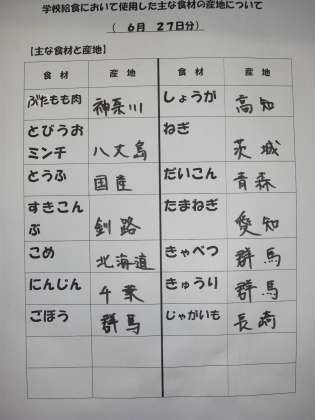 学校給食において使用した主な食材の産地について
（ 6月 27日分）
【主な食材と産地】
食材 産地 食材 産地
ぶたもも肉 神奈川 しょうが 高知
とびうおミンチ 八丈島 ねぎ 茨城
とうふ 国産 だいこん 青森
すきこんぶ 釧路 たまねぎ 愛知
こめ 北海道 きゃべつ 群馬
にんじん 千葉 きゅうり 群馬
ごぼう 群馬 じゃがいも 長崎